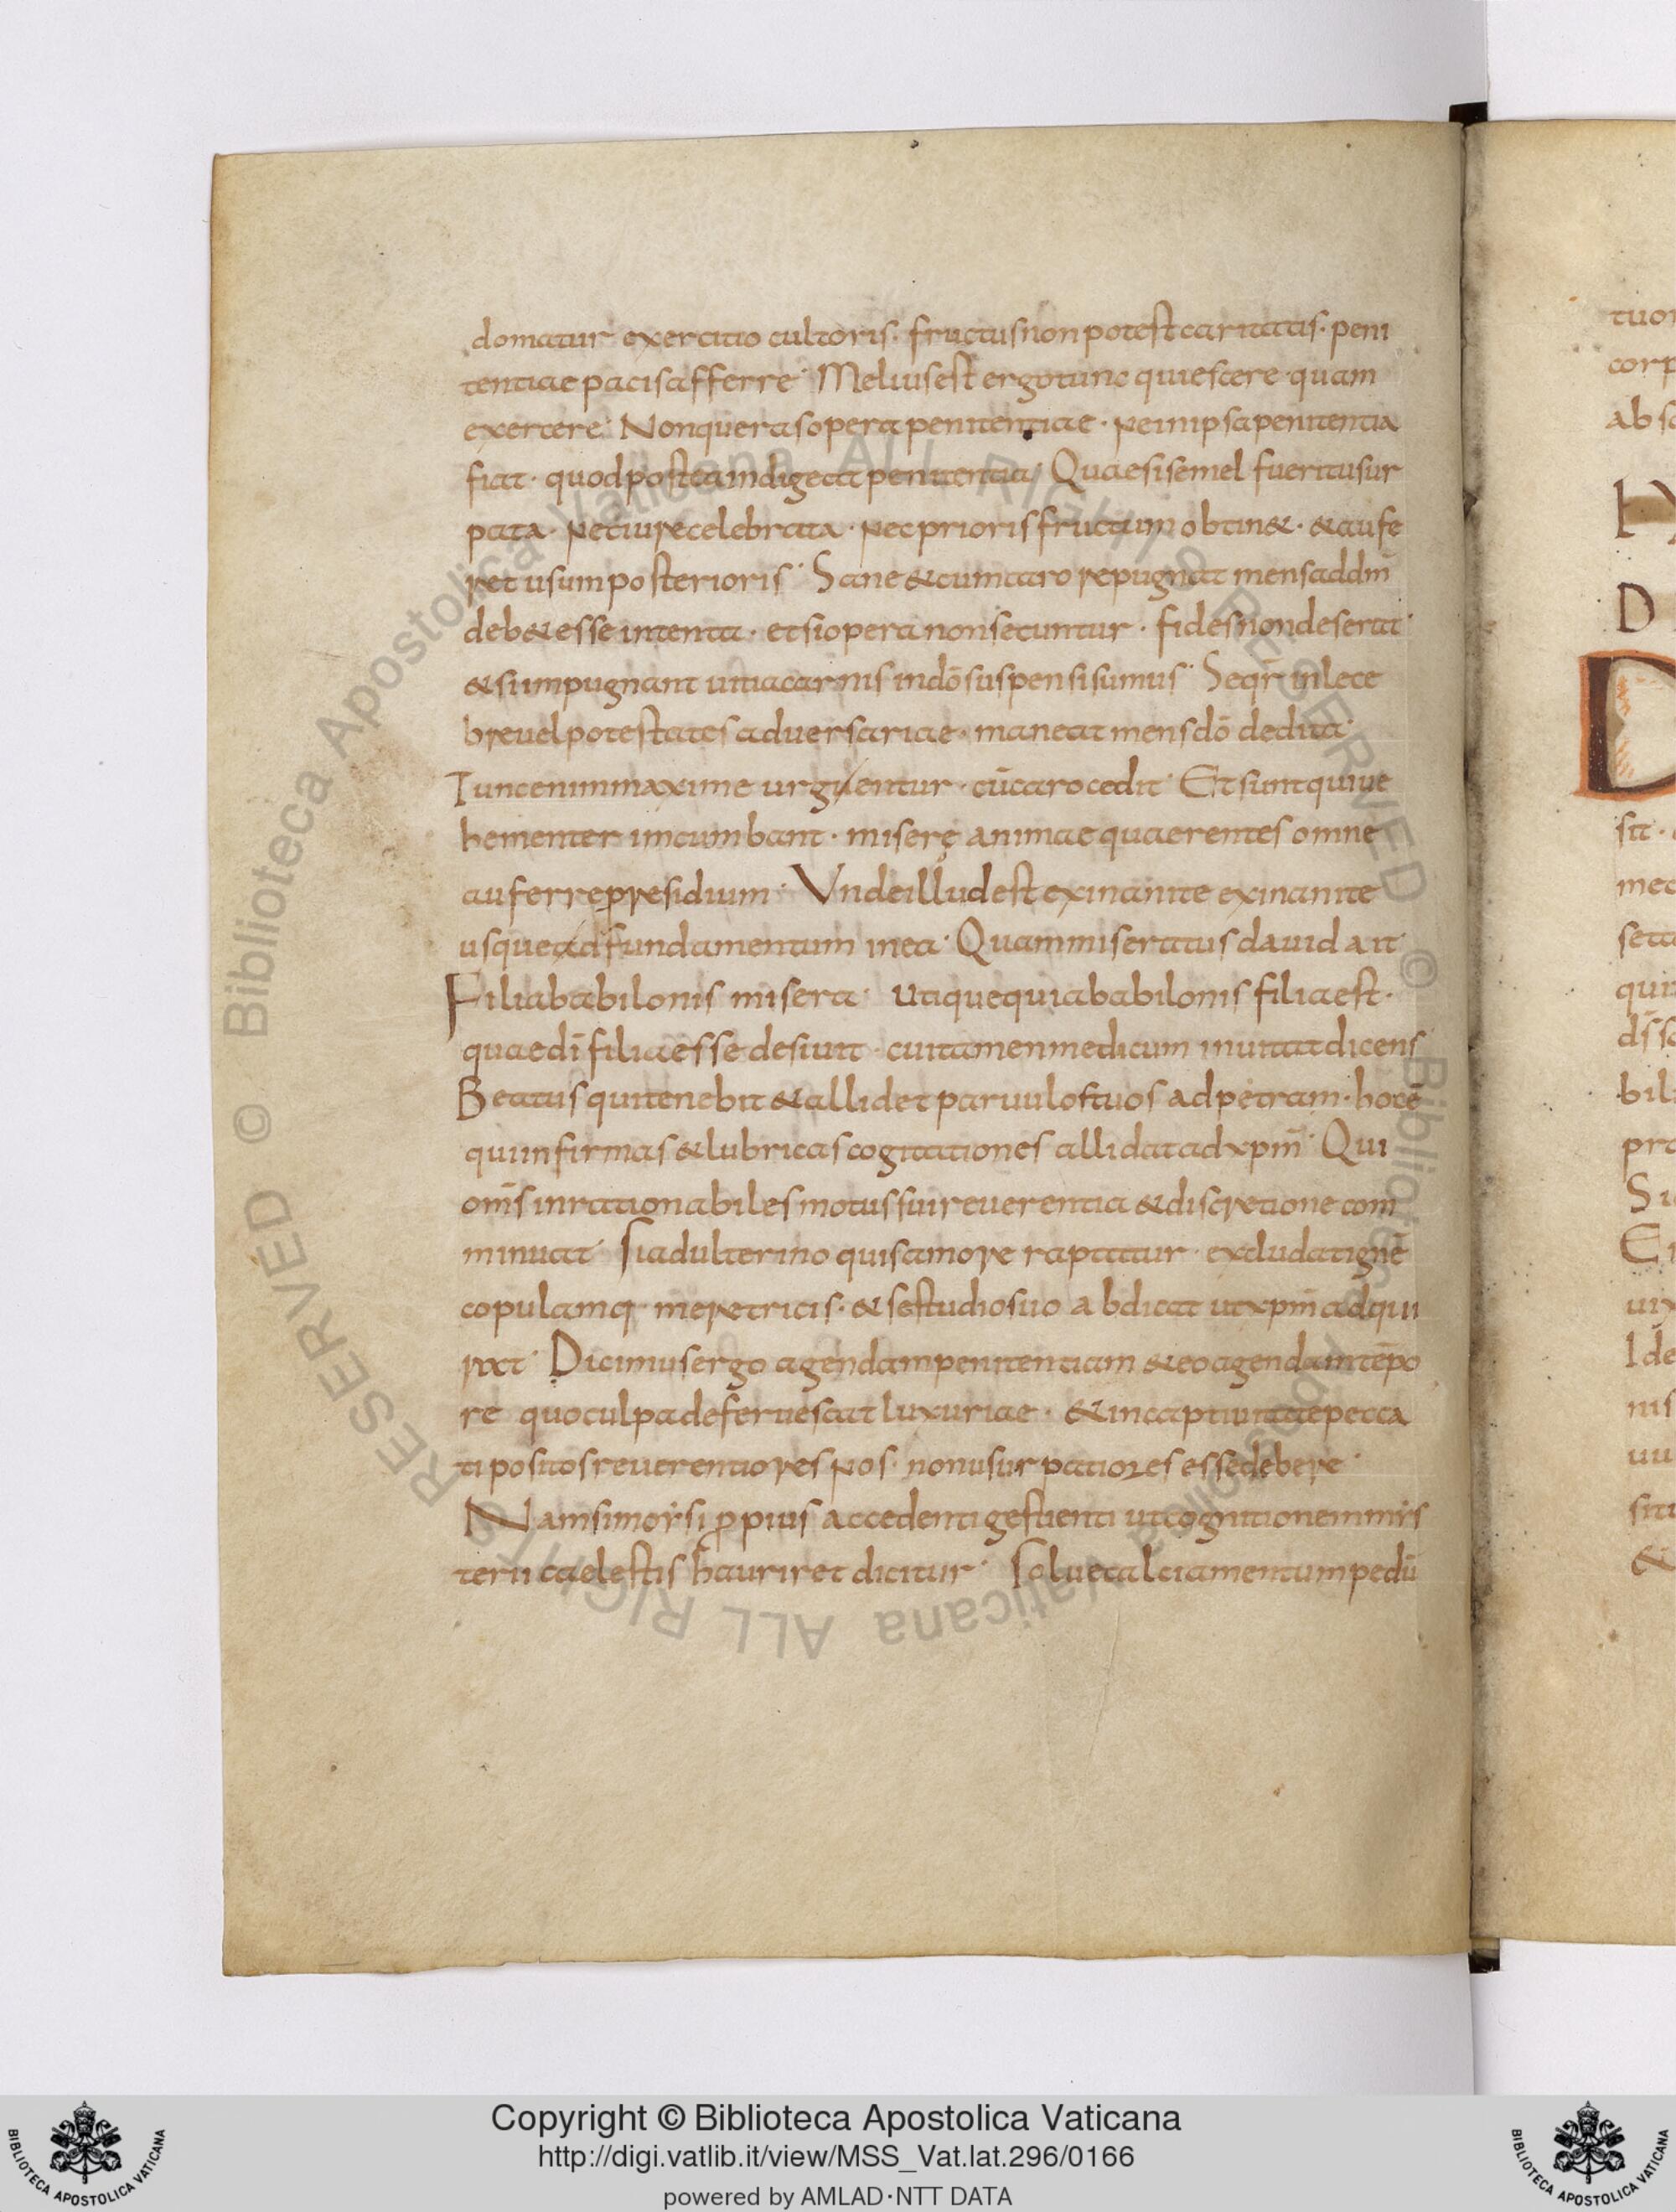 domatur exercitio cultoris · fructus non potest caritatis · peni
tentiae pacis afferre · Melius est ergo tunc quiescere · quam
exercere · Non queras opera penitentiae · ne in ipsa penitentia
fiat · quod postea indigeat penitentia · Quae si semel fuerit usur
pata · nec iure celebrata · nec prioris fructum obtin& · & aufe
ret usum posterioris · Sane & cum caro repugnat mens ad dm̄
deb& esse intenta · et si opera non secuntur · fides non deserat ·
& si impugnant uitia carnis in dō suspensi sumus · Seqr̄ inlece
bre uel potestates aduersariae · maneat mens dō dedita ·
Tunc enim maxime urguentur · cū caro cedit · Et sunt qui ue
hementer incumbant · miserę animae quaerentes omne
auferre presidium · Unde illud est exinanite exinanite
usque ad fundamentum in ea · Quam miseratus dauid ait ·
Filia babilonis misera · utique quia babilonis filia est ·
quae dī filia esse desiuit · cui tamen medicum inuitat dicens
Beatus qui tenebit & allidet paruulos tuos ad petram · hoc ē
qui infirmas & lubricas cogitationes allidat ad xpm̄ · Qui
om̄s inrationabiles motus sui reuerentia & discretione com
minuat · si adulterino quis amore raptatur · excludat ignē
copulamq· meretricis · & se studio suo abdicat ut xpm̄ adqui
rat · Dicimus ergo agendam penitentiam & eo agendam tēpo
re quo culpa deferuescat luxuriae · & in captiuitate pecca
ti positos reuerentiores nos · non usurpatiores esse debere ·
Nam si morsi propius accedenti gestienti ut cognitionem mis
terii caelestis hauriret dicitur · solue calciamentum pedū
tuor
corp
D
sit ·
quit
bil
&
Copyright © Biblioteca Apostolica Vaticana
http://digi.vatlib.it/view/MSS_Vat.lat.296/0166
powered by AMLAD·NTT DATA
BIBLIOTECA APOSTOLICA VATICANA
BIBLIOTECA APOSTOLICA VATICANA
© Biblioteca Apostolica Vaticana ALL RIGHTS RESERVED
© Biblioteca Apostolica Vaticana ALL RIGHTS RESERVED